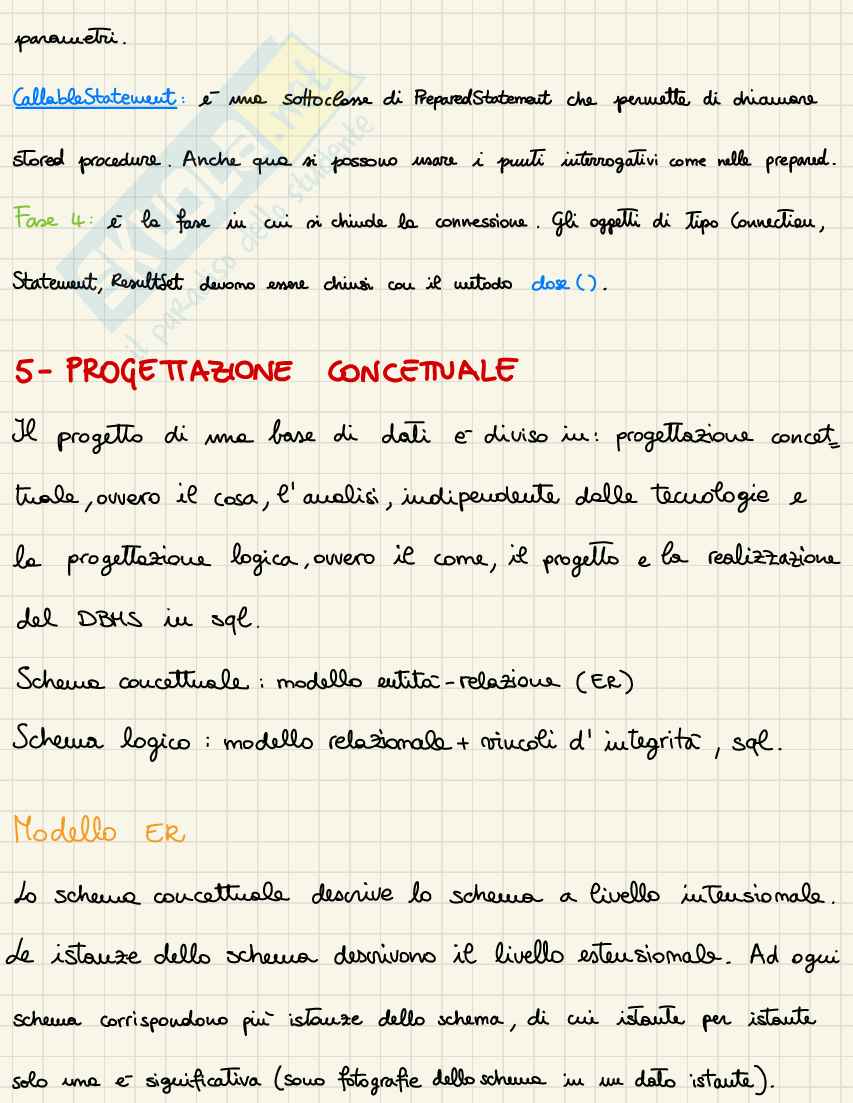 parametri.
CallableStatement: è una sottoclasse di PreparedStatement che permette di chiamare
stored procedure. Anche qua si possono usare i punti interrogativi come nelle prepared.
Fase 4: è la fase in cui si chiude la connessione. Gli oggetti di tipo Connection,
Statement, ResultSet devono essere chiusi con il metodo close().
5- PROGETTAZIONE CONCETTUALE
Il progetto di una base di dati è diviso in: progettazione concet=
tuale, ovvero il cosa, l'analisi, indipendente dalle tecnologie e
la progettazione logica, ovvero il come, il progetto e la realizzazione
del DBMS in sql.
Schema concettuale: modello entità-relazione (ER)
Schema logico: modello relazionale + vincoli d'integrità, sql.
Modello ER
Lo schema concettuale descrive lo schema a livello intensionale.
Le istanze dello schema descrivono il livello estensionale. Ad ogni
schema corrispondono più istanze dello schema, di cui istante per istante
solo una è significativa (sono fotografie dello schema in un dato istante).
SKUOLA.net
il paradiso dello studente